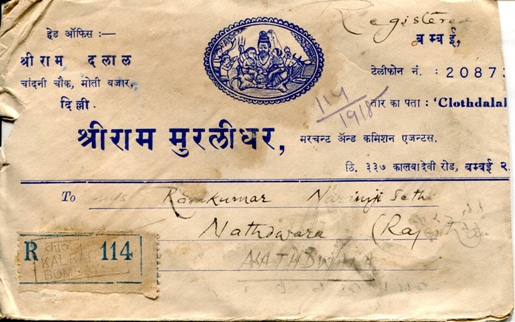 Registered
हेड ऑफिस :—
श्री राम दलाल
चांदनी चौक, मोती बजार,
दिल्ली.
बम्बई,
टेलीफोन नं. : 2087
तार का पता : 'Clothdalal
114
श्रीराम मुरलीधर, मरचन्ट ॲन्ड कमिशन एजन्टस.
ठि. ३३७ कालबादेवी रोड, बम्बई २.
To m/s Ramkumar
Nathdwara (Raj
NATHDWARA
R 114
KALBA
BOMBAY